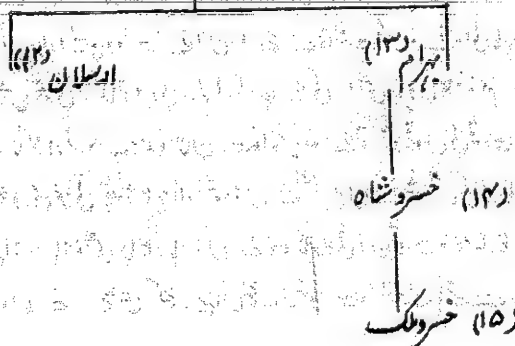 بہرام (۱۳)
ارسلان (۱۲)
(۱۴) خسرو شاہ
(۱۵) خسرو ملک